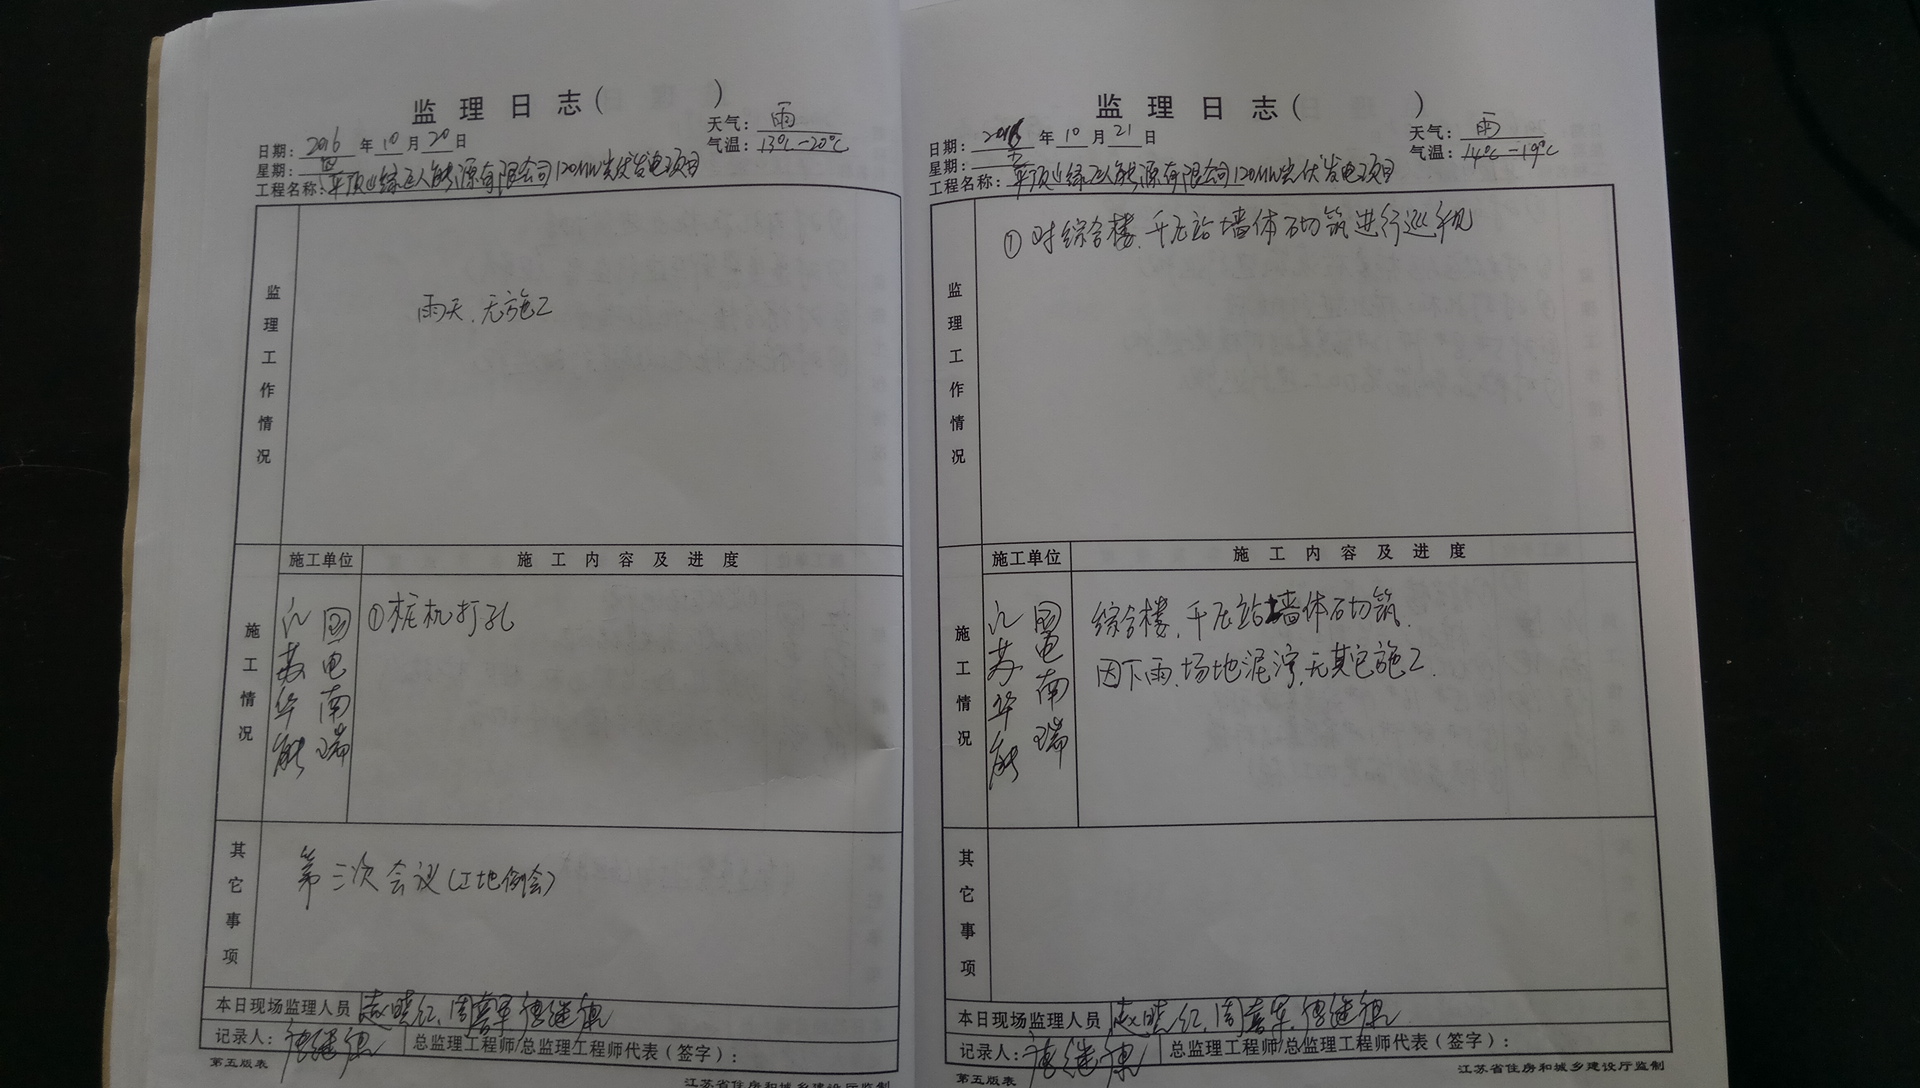 监理日志( )
天气：雨
日期：2016年10月20日
气温：13℃-20℃
星期：四
工程名称：平顶山绿巨人能源有限公司120MW光伏发电项目
监理工作情况
雨天、无施工
施工情况
施工单位
施工内容及进度
国电南瑞
江苏华能
①桩机打孔
其它事项
第三次会议(工地例会)
本日现场监理人员
记录人：
总监理工程师/总监理工程师代表(签字)：
第五版表
江苏省住房和城乡建设厅监制
监理日志( )
天气：雨
日期：2016年10月21日
气温：14℃-19℃
星期：五
工程名称：平顶山绿巨人能源有限公司120MW光伏发电项目
监理工作情况
①对综合楼、升压站墙体砌筑进行巡视
施工情况
施工单位
施工内容及进度
国电南瑞
江苏华能
综合楼、升压站墙体砌筑.
因下雨、场地泥泞、无其它施工.
其它事项
本日现场监理人员
记录人：
总监理工程师/总监理工程师代表(签字)：
第五版表
江苏省住房和城乡建设厅监制